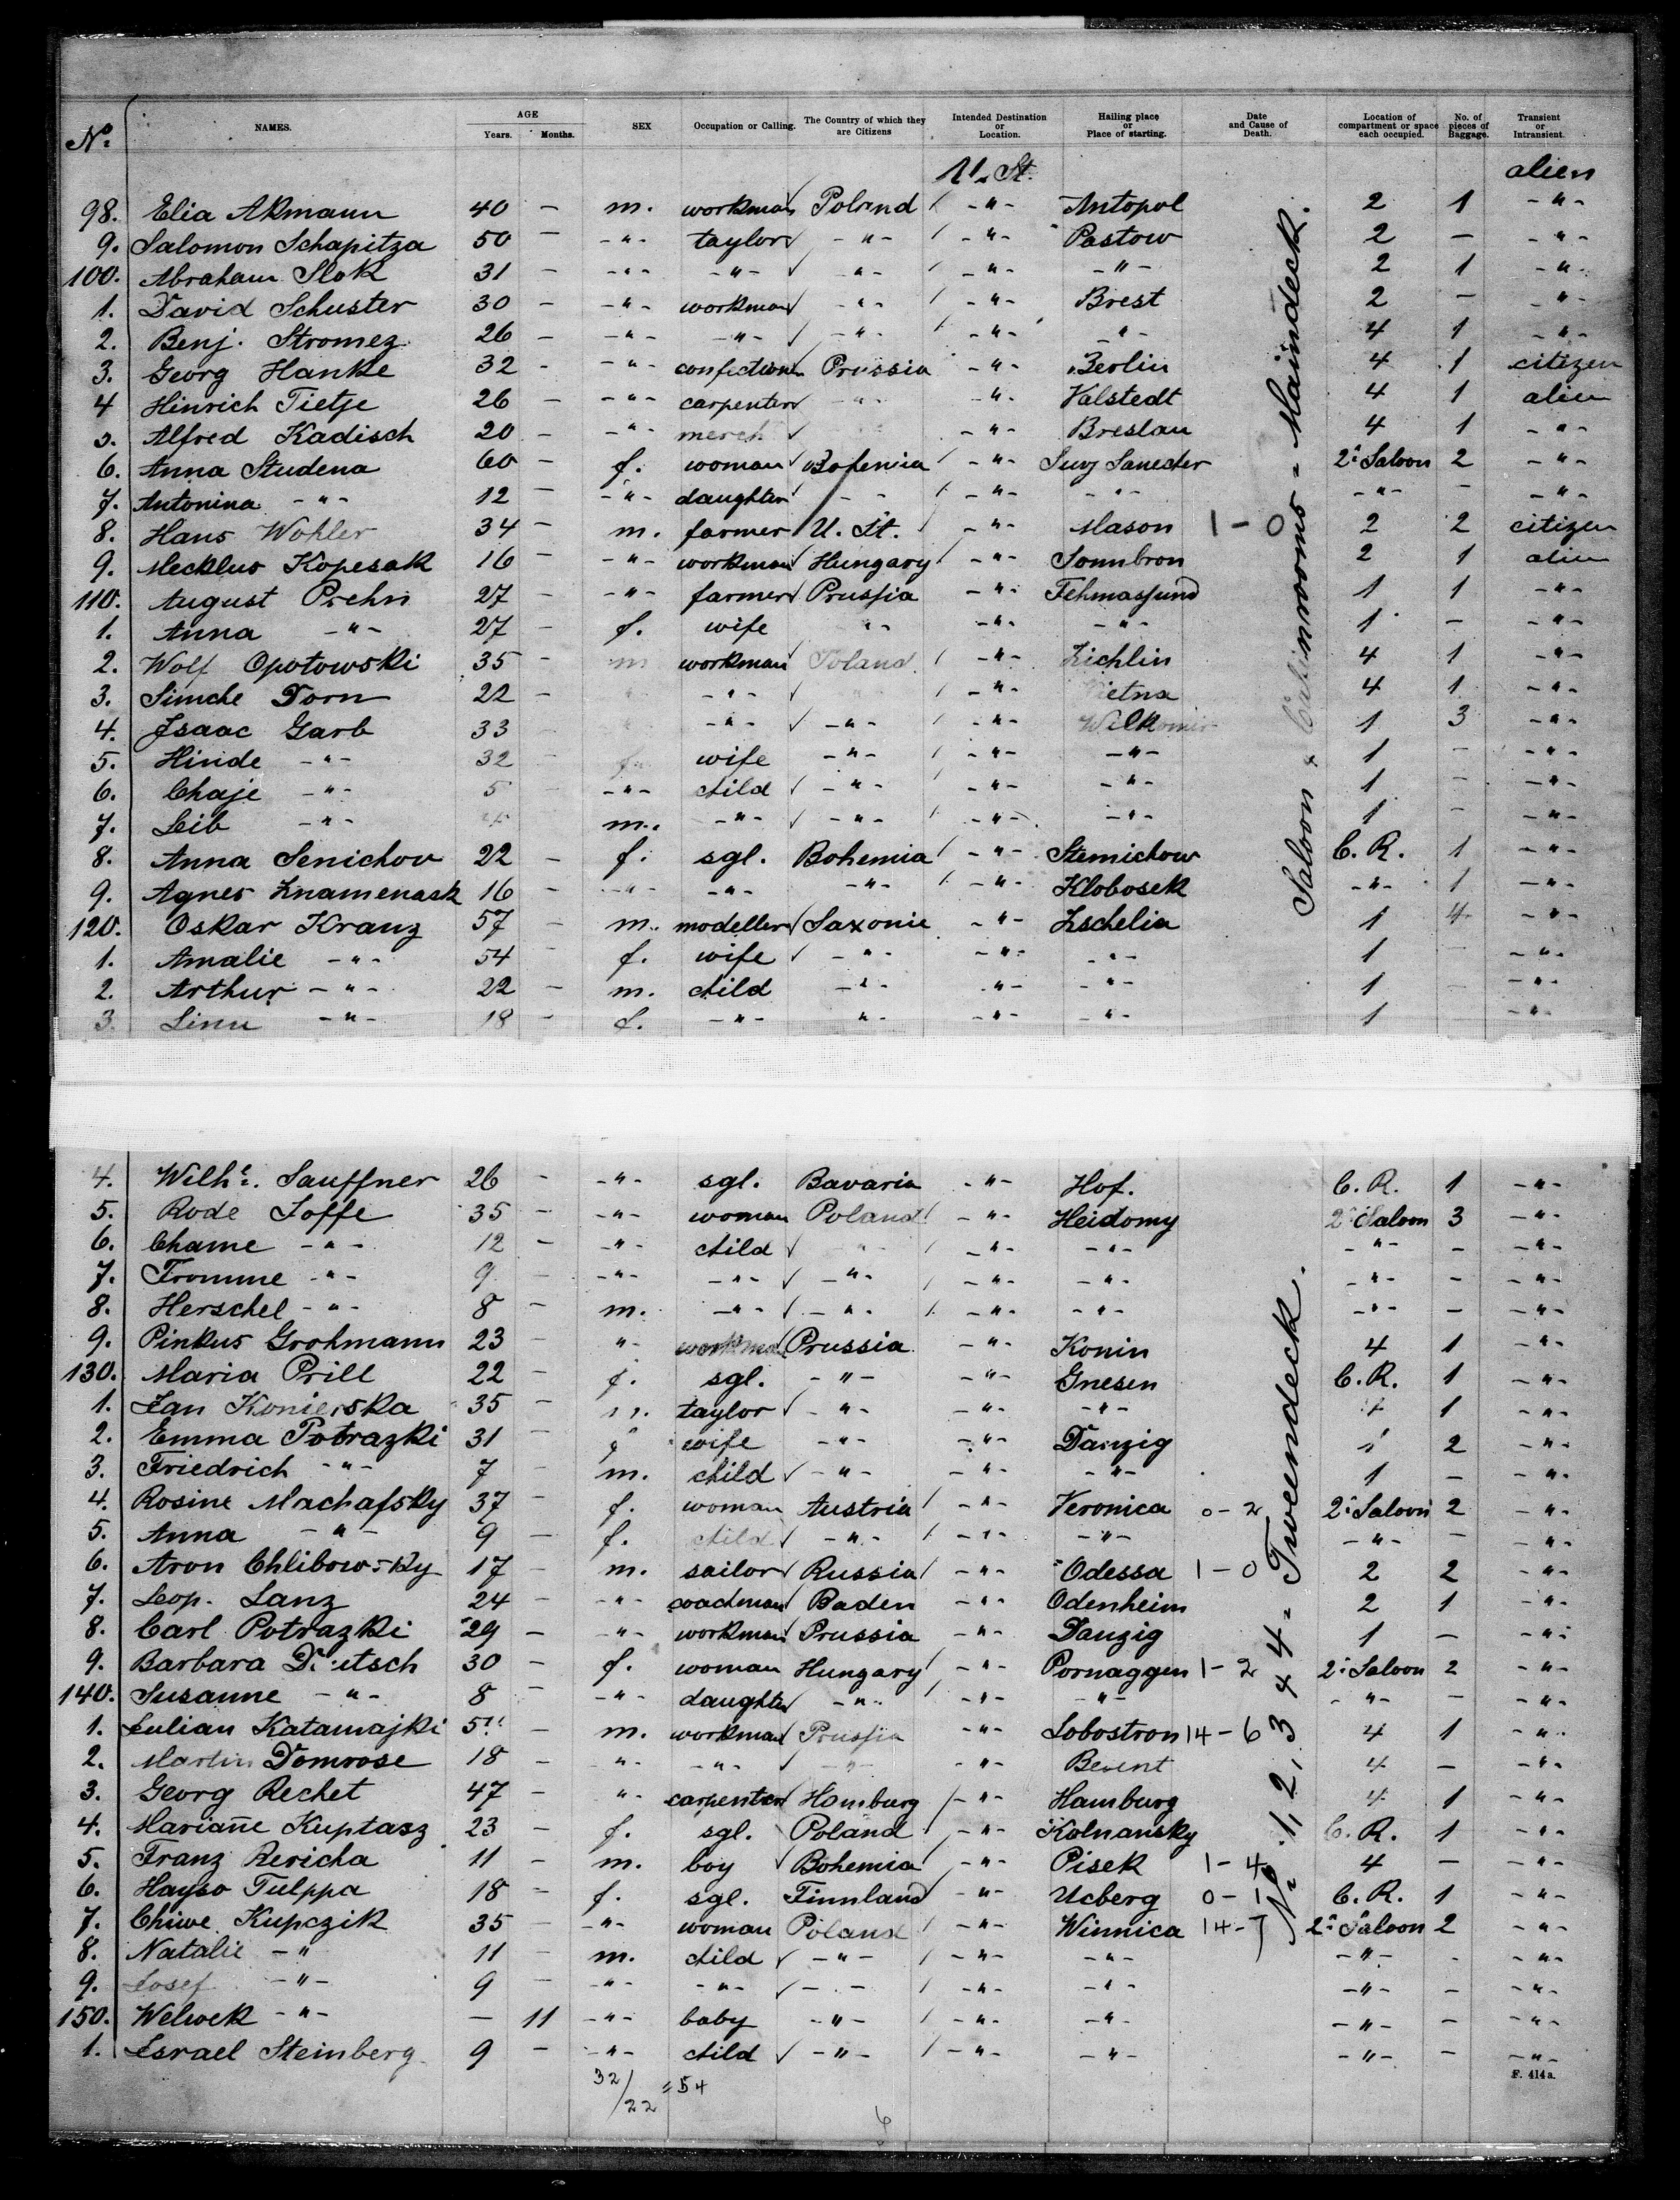 No. NAMES. AGE Years. Months. SEX Occupation or Calling. The Country of which they are Citizens Intended Destination or Location. Hailing place or Place of starting. Date and Cause of Death. Location of compartment or space each occupied. No. of pieces of Baggage. Transient or Intransient.
U. St. alien
98. Elia Akmann 40 - m. workman Poland -"- Antopol 2 1 -"-
9. Salomon Schapitza 50 -"- taylor -"- -"- Pastow 2 - -"-
100. Abraham Slok 31 - -"- -"- -"- -"- -"- 2 1 -"-
1. David Schuster 30 - -"- workman -"- -"- Brest 2 - -"-
2. Benj. Stromez 26 - -"- -"- -"- -"- -"- 4 1 -"-
3. Georg Hanke 32 - -"- confection Prussia -"- Berlin 4 1 citizen
4 Hinrich Tietje 26 - -"- carpenter -"- -"- Valstedt 4 1 alien
5. Alfred Kadisch 20 - -"- merch -"- Breslau 4 1 -"-
6. Anna Studena 60 - f. woman Bohemia -"- 2. Saloon 2 -"-
7. Antonina -"- 12 - -"- daughter -"- -"- -"- -"- - -"-
8. Hans Wohler 34 - m. farmer U. St. -"- Mason 1-0 2 2 citizen
9. Mecklus Kopesak 16 - -"- workman Hungary -"- Sonnbron 2 1 alien
110. August Prehn 27 - -"- farmer Prussia -"- Fehmassund 1 1 -"-
1. Anna -"- 27 - f. wife -"- -"- -"- 1 - -"-
2. Wolf Opotowski 35 - m workman Poland -"- Zichlin 4 1 -"-
3. Simche Dorn 22 - -"- -"- 4 1 -"-
4. Isaac Garb 33 -"- -"- -"- Wilkomir 1 3 -"-
5. Hinde -"- 32 f. wife -"- -"- -"- 1 - -"-
6. Chaje -"- 5 -"- child -"- -"- -"- 1 - -"-
7. Leib -"- m. -"- -"- -"- -"- 1 - -"-
8. Anna Senichov 22 - f. sgl. Bohemia -"- Stemichow C. R. 1 -"-
9. Agnes Znamenack 16 - -"- -"- -"- -"- Klobosek -"- 1 -"-
120. Oskar Kranz 57 - m. modeller Saxonie -"- Zschelia 1 4 -"-
1. Amalie -"- 54 f. wife -"- -"- -"- 1 - -"-
2. Arthur -"- 22 - m. child -"- -"- -"- 1 - -"-
3. Linu -"- 18 - f. -"- -"- -"- -"- 1 -"-
Saloon & Cabinrooms = Maindeck.
4. Wilhe. Sauffner 26 - -"- sgl. Bavaria -"- Hof. C. R. 1 -"-
5. Rode Joffe 35 - -"- woman Poland -"- Heidomy 2. Saloon 3 -"-
6. Chame -"- 12 - -"- child -"- -"- -"- -"- - -"-
7. Fromme -"- 9 - -"- -"- -"- -"- -"- -"- - -"-
8. Herschel -"- 8 - m. -"- -"- -"- -"- -"- - -"-
9. Pinkus Grohmann 23 -"- workman Prussia -"- Konin 4 1 -"-
130. Maria Prill 22 - f. sgl. -"- -"- Gnesen C. R. 1 -"-
1. Jan Konierska 35 - m. taylor -"- -"- -"- 4 1 -"-
2. Emma Potrazki 31 - f wife -"- -"- Danzig 1 2 -"-
3. Friedrich -"- 7 - m. child -"- -"- -"- 1 - -"-
4. Rosine Machafsky 37 - f. woman Austria -"- Veronica 0-2 2. Saloon 2 -"-
5. Anna -"- 9 - f. child -"- -"- -"- -"- - -"-
6. Aron Chlibowsky 17 - m. sailor Russia -"- Odessa 1-0 2 2 -"-
7. Leop. Lanz 24 - -"- coachman Baden -"- Odenheim 2 1 -"-
8. Carl Potrazki 29 - -"- workman Prussia -"- Danzig 1 - -"-
9. Barbara Deutsch 30 - f. woman Hungary -"- Pornaggen 1-2 2. Saloon 2 -"-
140. Susanne -"- 8 - -"- daughter -"- -"- -"- -"- - -"-
1. Julian Katamajki - m. workman Prussia -"- Lobostron 14-6 4 1 -"-
2. Martin Domrose 18 - -"- -"- -"- -"- Berent 4 - -"-
3. Georg Rechet 47 - -"- carpenter Hamburg -"- Hamburg 4 1 -"-
4. Marianne Kuptasz 23 - f. sgl. Poland -"- Kolnansky C. R. 1 -"-
5. Franz Rericha 11 - m. boy Bohemia -"- Pisek 1-4 4 - -"-
6. Hayso Tulppa 18 - f. sgl. Finnland -"- Ucberg 0-1 C. R. 1 -"-
7. Chiwe Kupczik 35 - -"- woman Poland -"- Winnica 14-7 2. Saloon 2 -"-
8. Natalie -"- 11 - m. child -"- -"- -"- -"- - -"-
9. Josef -"- 9 - -"- -"- -"- -"- -"- -"- - -"-
150. Welwek -"- - 11 -"- baby -"- -"- -"- -"- - -"-
1. Israel Steinberg 9 - -"- child -"- -"- -"- -"- - -"-
No. 1, 2, 3 & 4 = Tweendeck.
32/22 = 54
F. 414a.
6